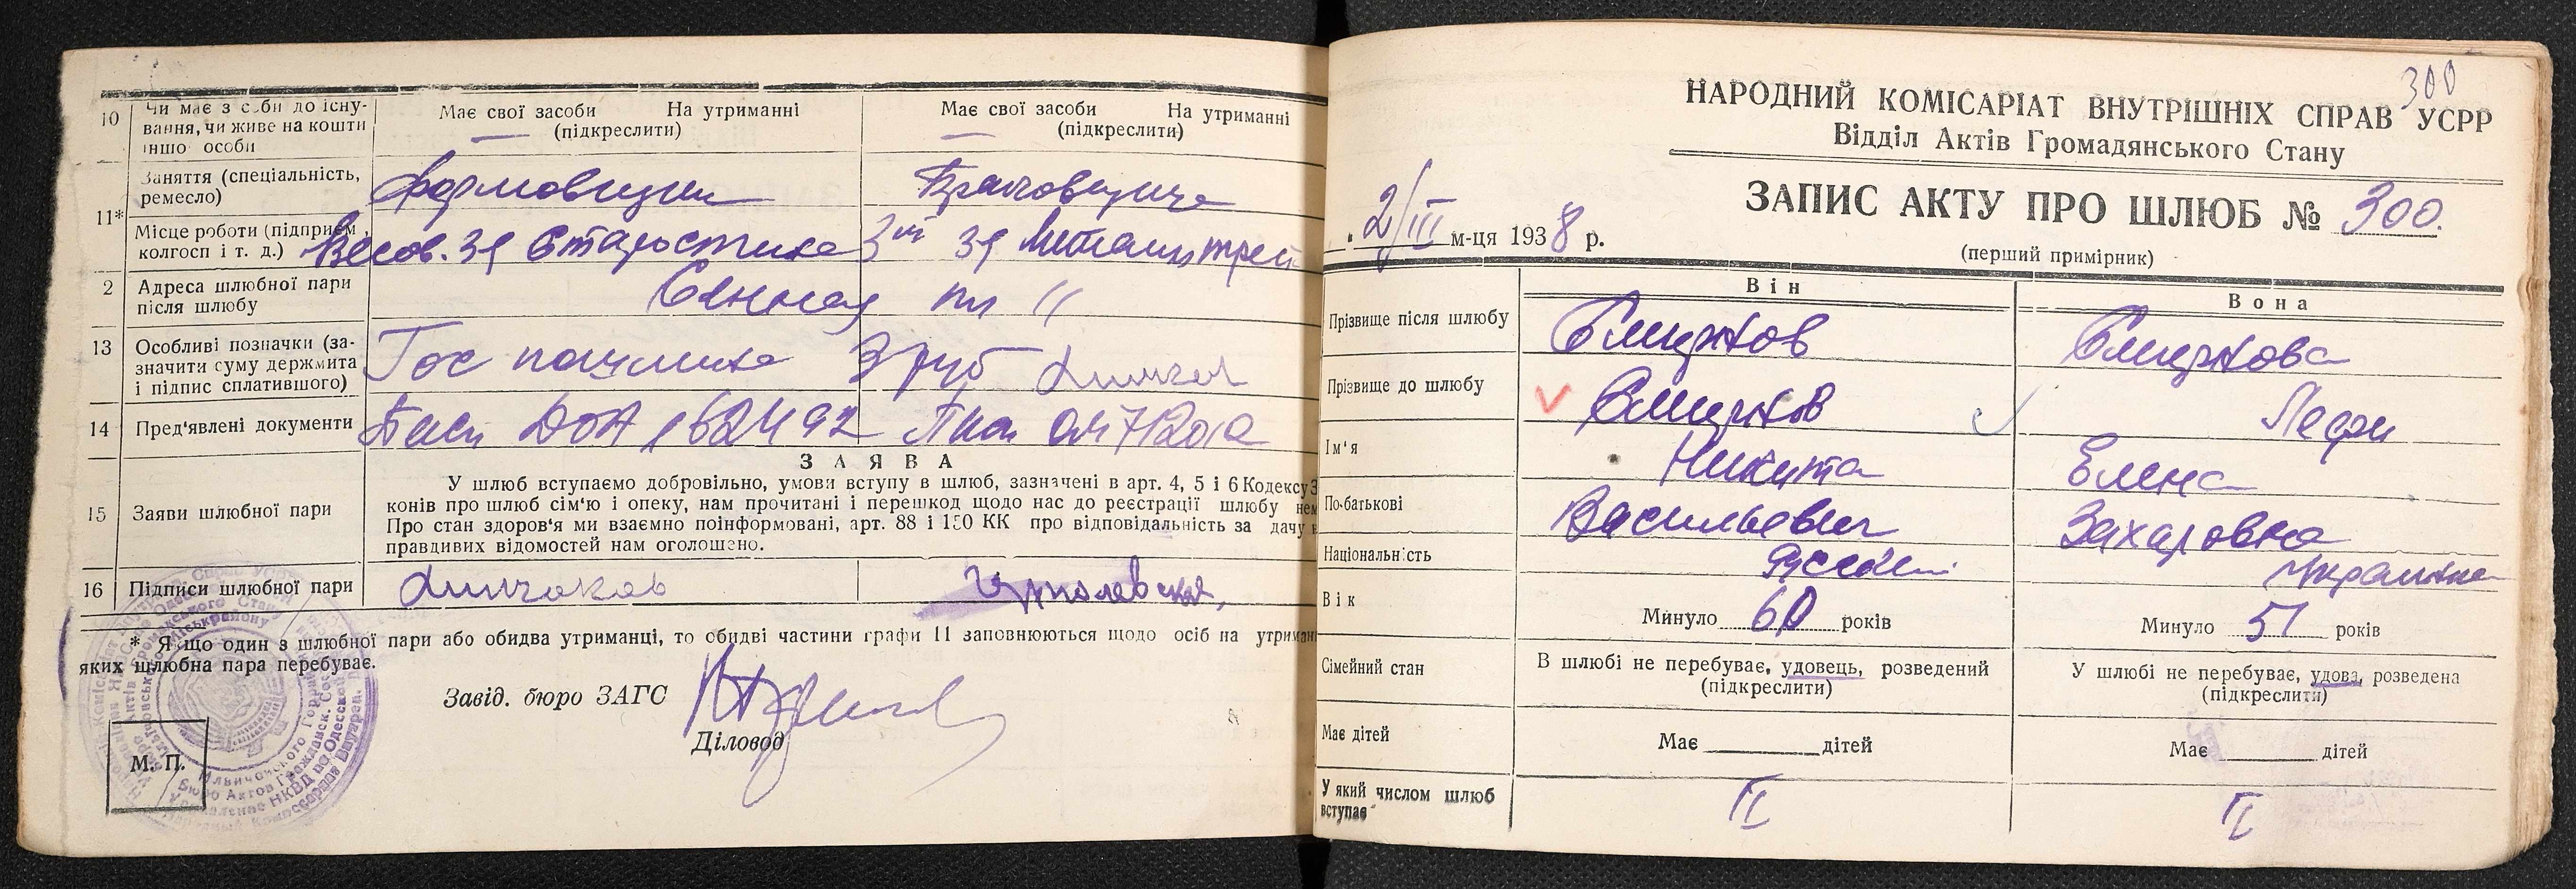 10
Чи має з соби до існу-
вання, чи живе на кошти
іншо особи
Має свої засоби На утриманні
(підкреслити)
Має свої засоби На утриманні
(підкреслити)
11*
Заняття (спеціальність,
ремесло)
Формовщик
Місце роботи (підприєм,
колгосп і т. д.)
2
Адреса шлюбної пари
після шлюбу
Сенная пл
13
Особливі позначки (за-
значити суму держмита
і підпис сплатившого)
Гос пошлина 3 руб
14
Пред'явлені документи
ЗАЯВА
15
Заяви шлюбної пари
У шлюб вступаємо добровільно, умови вступу в шлюб, зазначені в арт. 4, 5 і 6 Кодексу З
конів про шлюб сім'ю і опеку, нам прочитані і перешкод щодо нас до реєстрації шлюбу нем
Про стан здоров'я ми взаємно поінформовані, арт. 88 і 150 КК про відповідальність за дачу н
правдивих відомостей нам оголошено.
16
Підписи шлюбної пари
* Я що один з шлюбної пари або обидва утриманці, то обидві частини графи 11 заповнюються щодо осіб на утриман
яких шлюбна пара перебуває.
Завід. бюро ЗАГС
Діловод
М. П.
300
НАРОДНИЙ КОМІСАРІАТ ВНУТРІШНІХ СПРАВ УСРР
Відділ Актів Громадянського Стану
ЗАПИС АКТУ ПРО ШЛЮБ № 300.
2/III м-ця 1938 р.
(перший примірник)
Він
Вона
Прізвище після шлюбу
Смирнов
Смирнова
Прізвище до шлюбу
Смирнов
Ім'я
Никита
Елена
По-батькові
Васильевич
Захаровна
Національність
Украинка
Вік
Минуло 60 років
Минуло 51 років
Сімейний стан
В шлюбі не перебуває, удовець, розведений
(підкреслити)
У шлюбі не перебуває, удова, розведена
(підкреслити)
Має дітей
Має дітей
Має дітей
У який числом шлюб
вступає
II
II